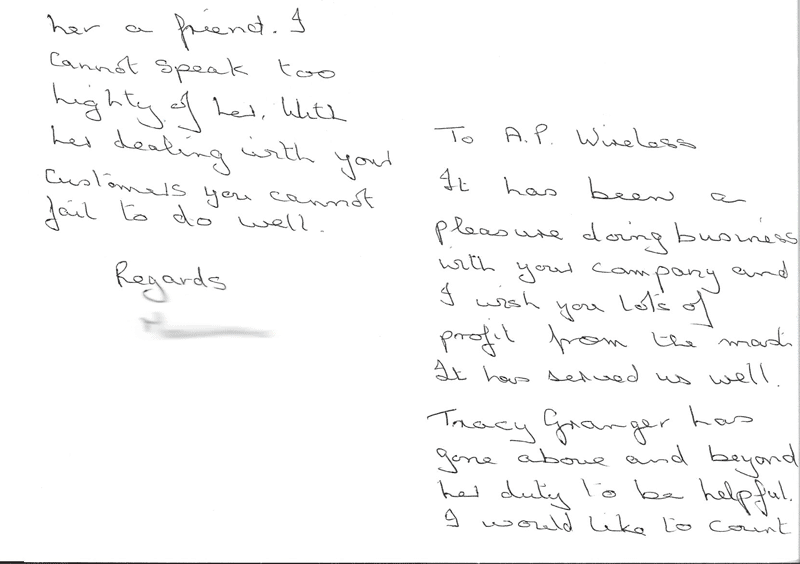 To A.P. Wireless
It has been a
pleasure doing business
with your company and
I wish you lots of
profit from the mast
It has served us well.
Tracy Granger has
gone above and beyond
her duty to be helpful.
I would like to count
her a friend. I
cannot speak too
highly of her. With
her dealing with your
customers you cannot
fail to do well.
Regards